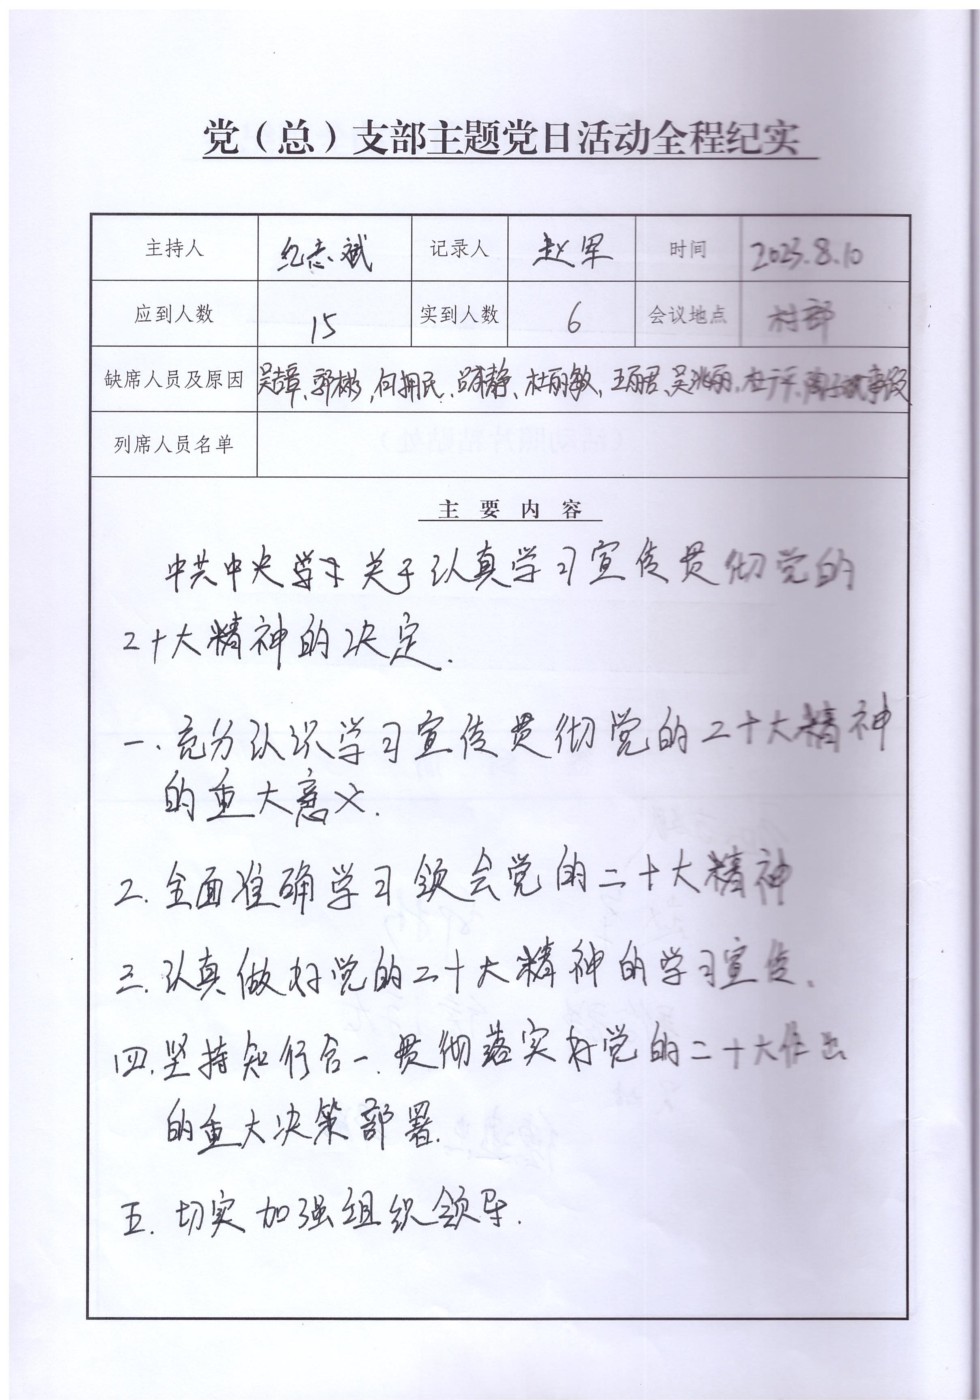 党（总）支部主题党日活动全程纪实
主持人 纪志斌 记录人 赵军 时间 2023.8.10
应到人数 15 实到人数 6 会议地点 村部
缺席人员及原因 郭彬, 何拥民, 杜丽敏, 王丽君, 事假
列席人员名单
主要内容
中共中央 关于认真学习宣传贯彻党的
二十大精神的决定.
一. 充分认识学习宣传贯彻党的二十大精神
的重大意义.
二. 全面准确学习领会党的二十大精神
三. 认真做好党的二十大精神的学习宣传.
四. 坚持知行合一. 贯彻落实好党的二十大作出
的重大决策部署.
五. 切实加强组织领导.